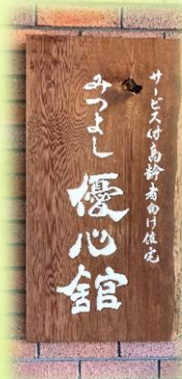 サービス付高齢者向け住宅
みつよし優心館